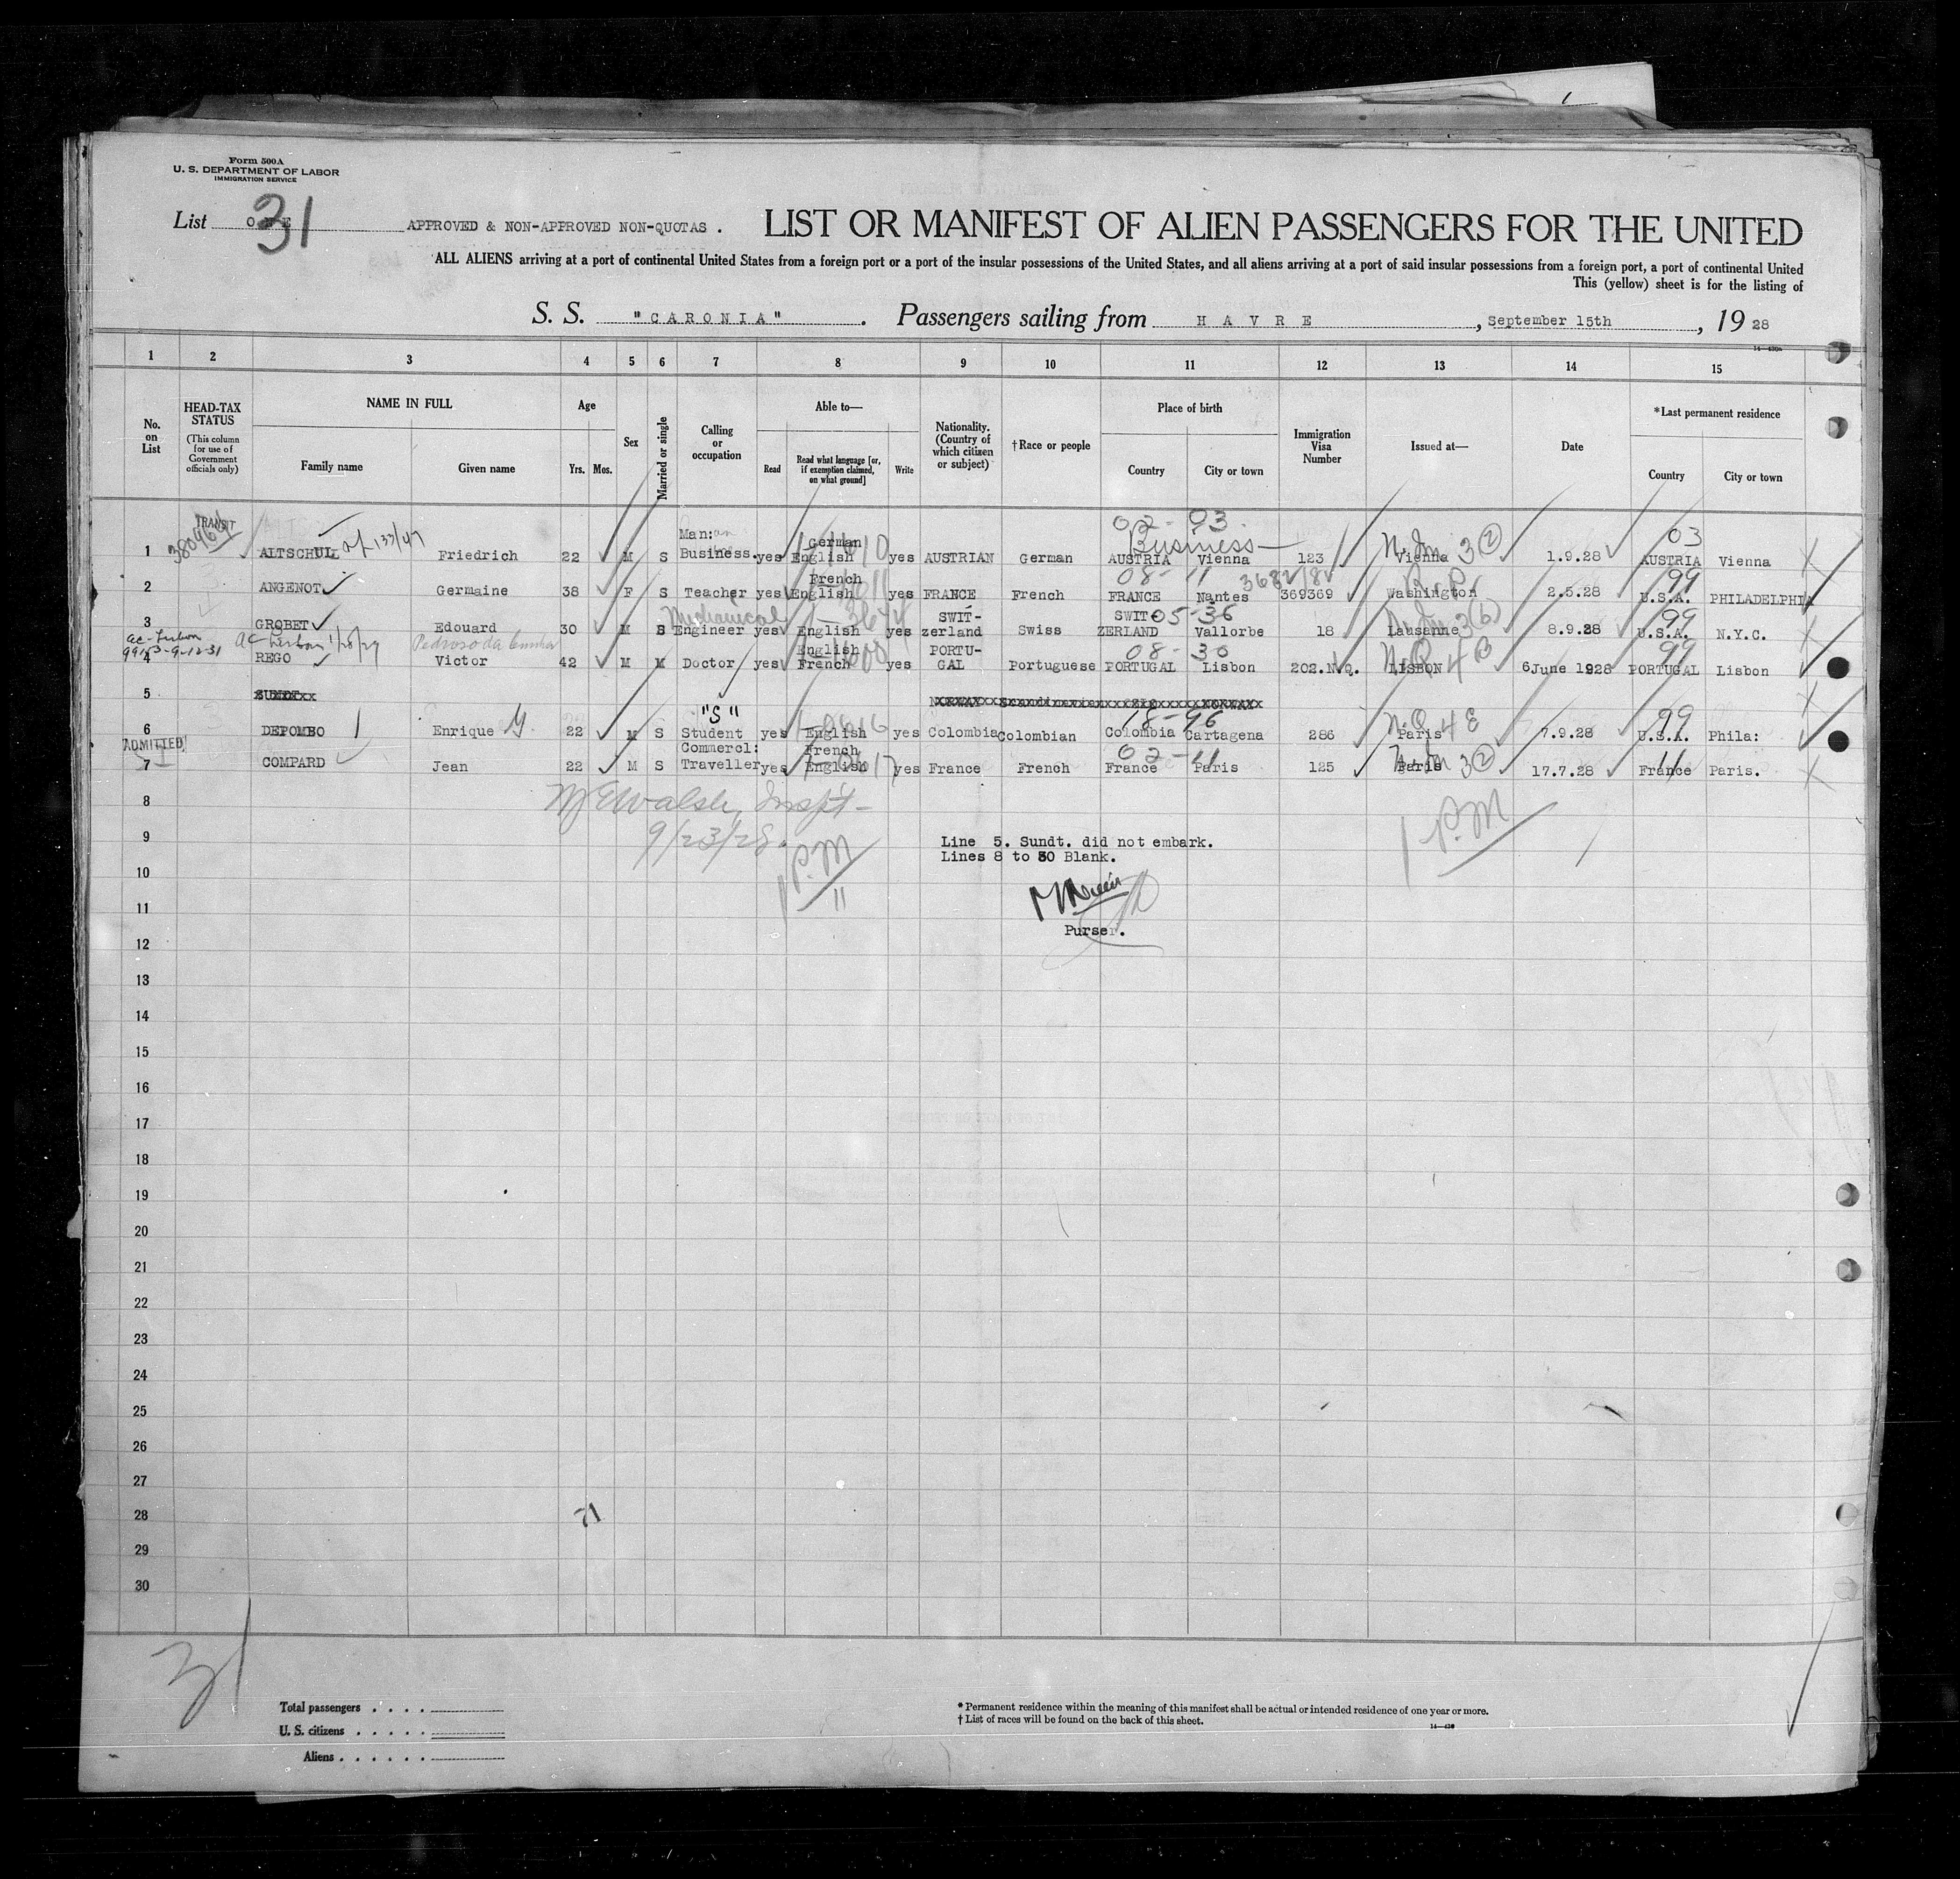 Form 500A
U. S. DEPARTMENT OF LABOR
IMMIGRATION SERVICE
List ONE 31 APPROVED & NON-APPROVED NON-QUOTAS . LIST OR MANIFEST OF ALIEN PASSENGERS FOR THE UNITED
ALL ALIENS arriving at a port of continental United States from a foreign port or a port of the insular possessions of the United States, and all aliens arriving at a port of said insular possessions from a foreign port, a port of continental United
This (yellow) sheet is for the listing of
S. S. "CARONIA" . Passengers sailing from HAVRE , September 15th , 19 28
1 2 3 4 5 6 7 8 9 10 11 12 13 14 15
No. on List
HEAD-TAX STATUS (This column for use of Government officials only)
NAME IN FULL
Family name Given name
Age
Yrs. Mos.
Sex
Married or single
Calling or occupation
Able to—
Read Read what language [or, if exemption claimed, on what ground] Write
Nationality. (Country of which citizen or subject)
†Race or people
Place of birth
Country City or town
Immigration Visa Number
Issued at—
Date
*Last permanent residence
Country City or town
02-03 03
TRANSIT Man: German Business—
1 ALTSCHUL Friedrich 22 M S Business. yes English yes AUSTRIAN German AUSTRIA Vienna 123 Vienna 3 2 1.9.28 AUSTRIA Vienna
French 08-11 99
2 ANGENOT Germaine 38 F S Teacher yes English yes FRANCE French FRANCE Nantes 369369 Washington 2.5.28 U.S.A. PHILADELPHIA
Mechanical SWIT- SWIT 05-36 99
3 GROBET Edouard 30 M S Engineer yes English yes zerland Swiss ZERLAND Vallorbe 18 Lausanne 3(b) 8.9.28 U.S.A. N.Y.C.
Pedroso da Cunha English PORTU- 08-30 99
4 REGO Victor 42 M M Doctor yes French yes GAL Portuguese PORTUGAL Lisbon 202.N.Q. LISBON 4 B 6June 1928 PORTUGAL Lisbon
5 SUNDT
"S" 18-96 99
6 DEPOMBO Enrique Y. 22 M S Student yes English yes Colombia Colombian Colombia Cartagena 286 N.Q. Paris 4 E 7.9.28 U.S.A. Phila:
ADMITTED Commercl: French 02-11 11
7 COMPARD Jean 22 M S Traveller yes English yes France French France Paris 125 Paris 3 2 17.7.28 France Paris.
8
9/23/28.
9 Line 5. Sundt. did not embark.
Lines 8 to 30 Blank.
P.M P.M
10
11
Purser.
12
13
14
15
16
17
18
19
20
21
22
23
24
25
26
27
28 71
29
30
31
Total passengers . . . .
U. S. citizens . . . . .
Aliens . . . . . .
* Permanent residence within the meaning of this manifest shall be actual or intended residence of one year or more.
† List of races will be found on the back of this sheet.